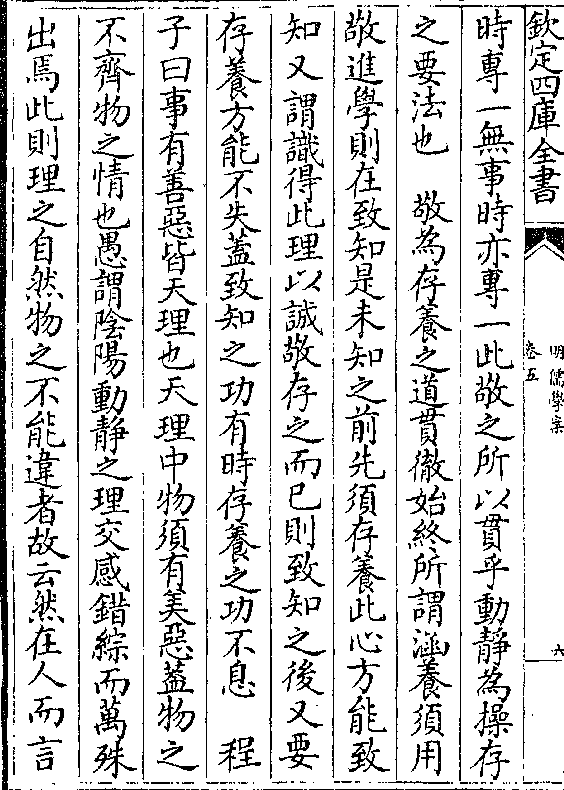 欽定四庫全書
明儒學案
卷五
六
時專一無事時亦專一此敬之所以貫乎動靜為操存
之要法也　敬為存養之道貫徹始終所謂涵養須用
敬進學則在致知是未知之前先須存養此心方能致
知又謂識得此理以誠敬存之而已則致知之後又要
存養方能不失蓋致知之功有時存養之功不息　程
子曰事有善惡皆天理也天理中物須有美惡蓋物之
不齊物之情也愚謂陰陽動靜之理交感錯綜而萬殊
出焉此則理之自然物之不能違者故云然在人而言